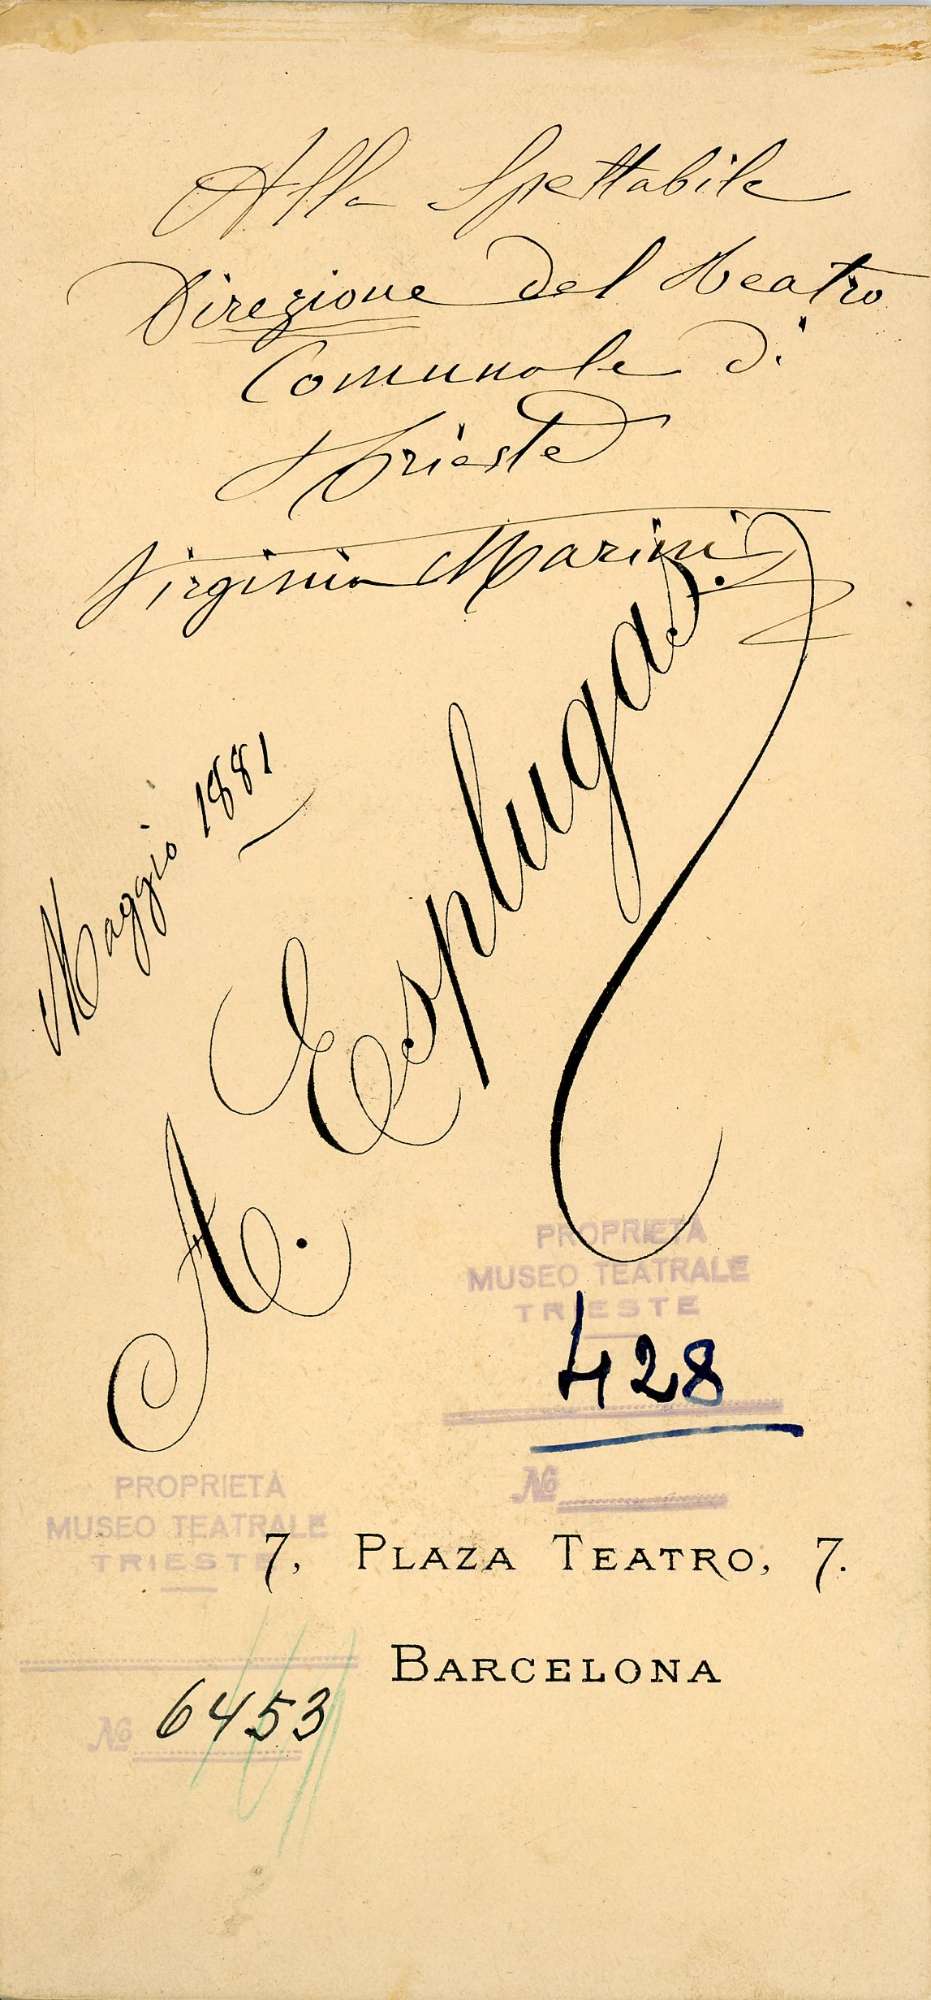 Alla Spettabile
Direzione del Teatro
Comunale di
Trieste
Virginia Marini
Maggio 1881
A. Esplugas.
PROPRIETÀ
MUSEO TEATRALE
TRIESTE
428
No
PROPRIETÀ
MUSEO TEATRALE
TRIESTE
7, PLAZA TEATRO, 7.
BARCELONA
No 6453